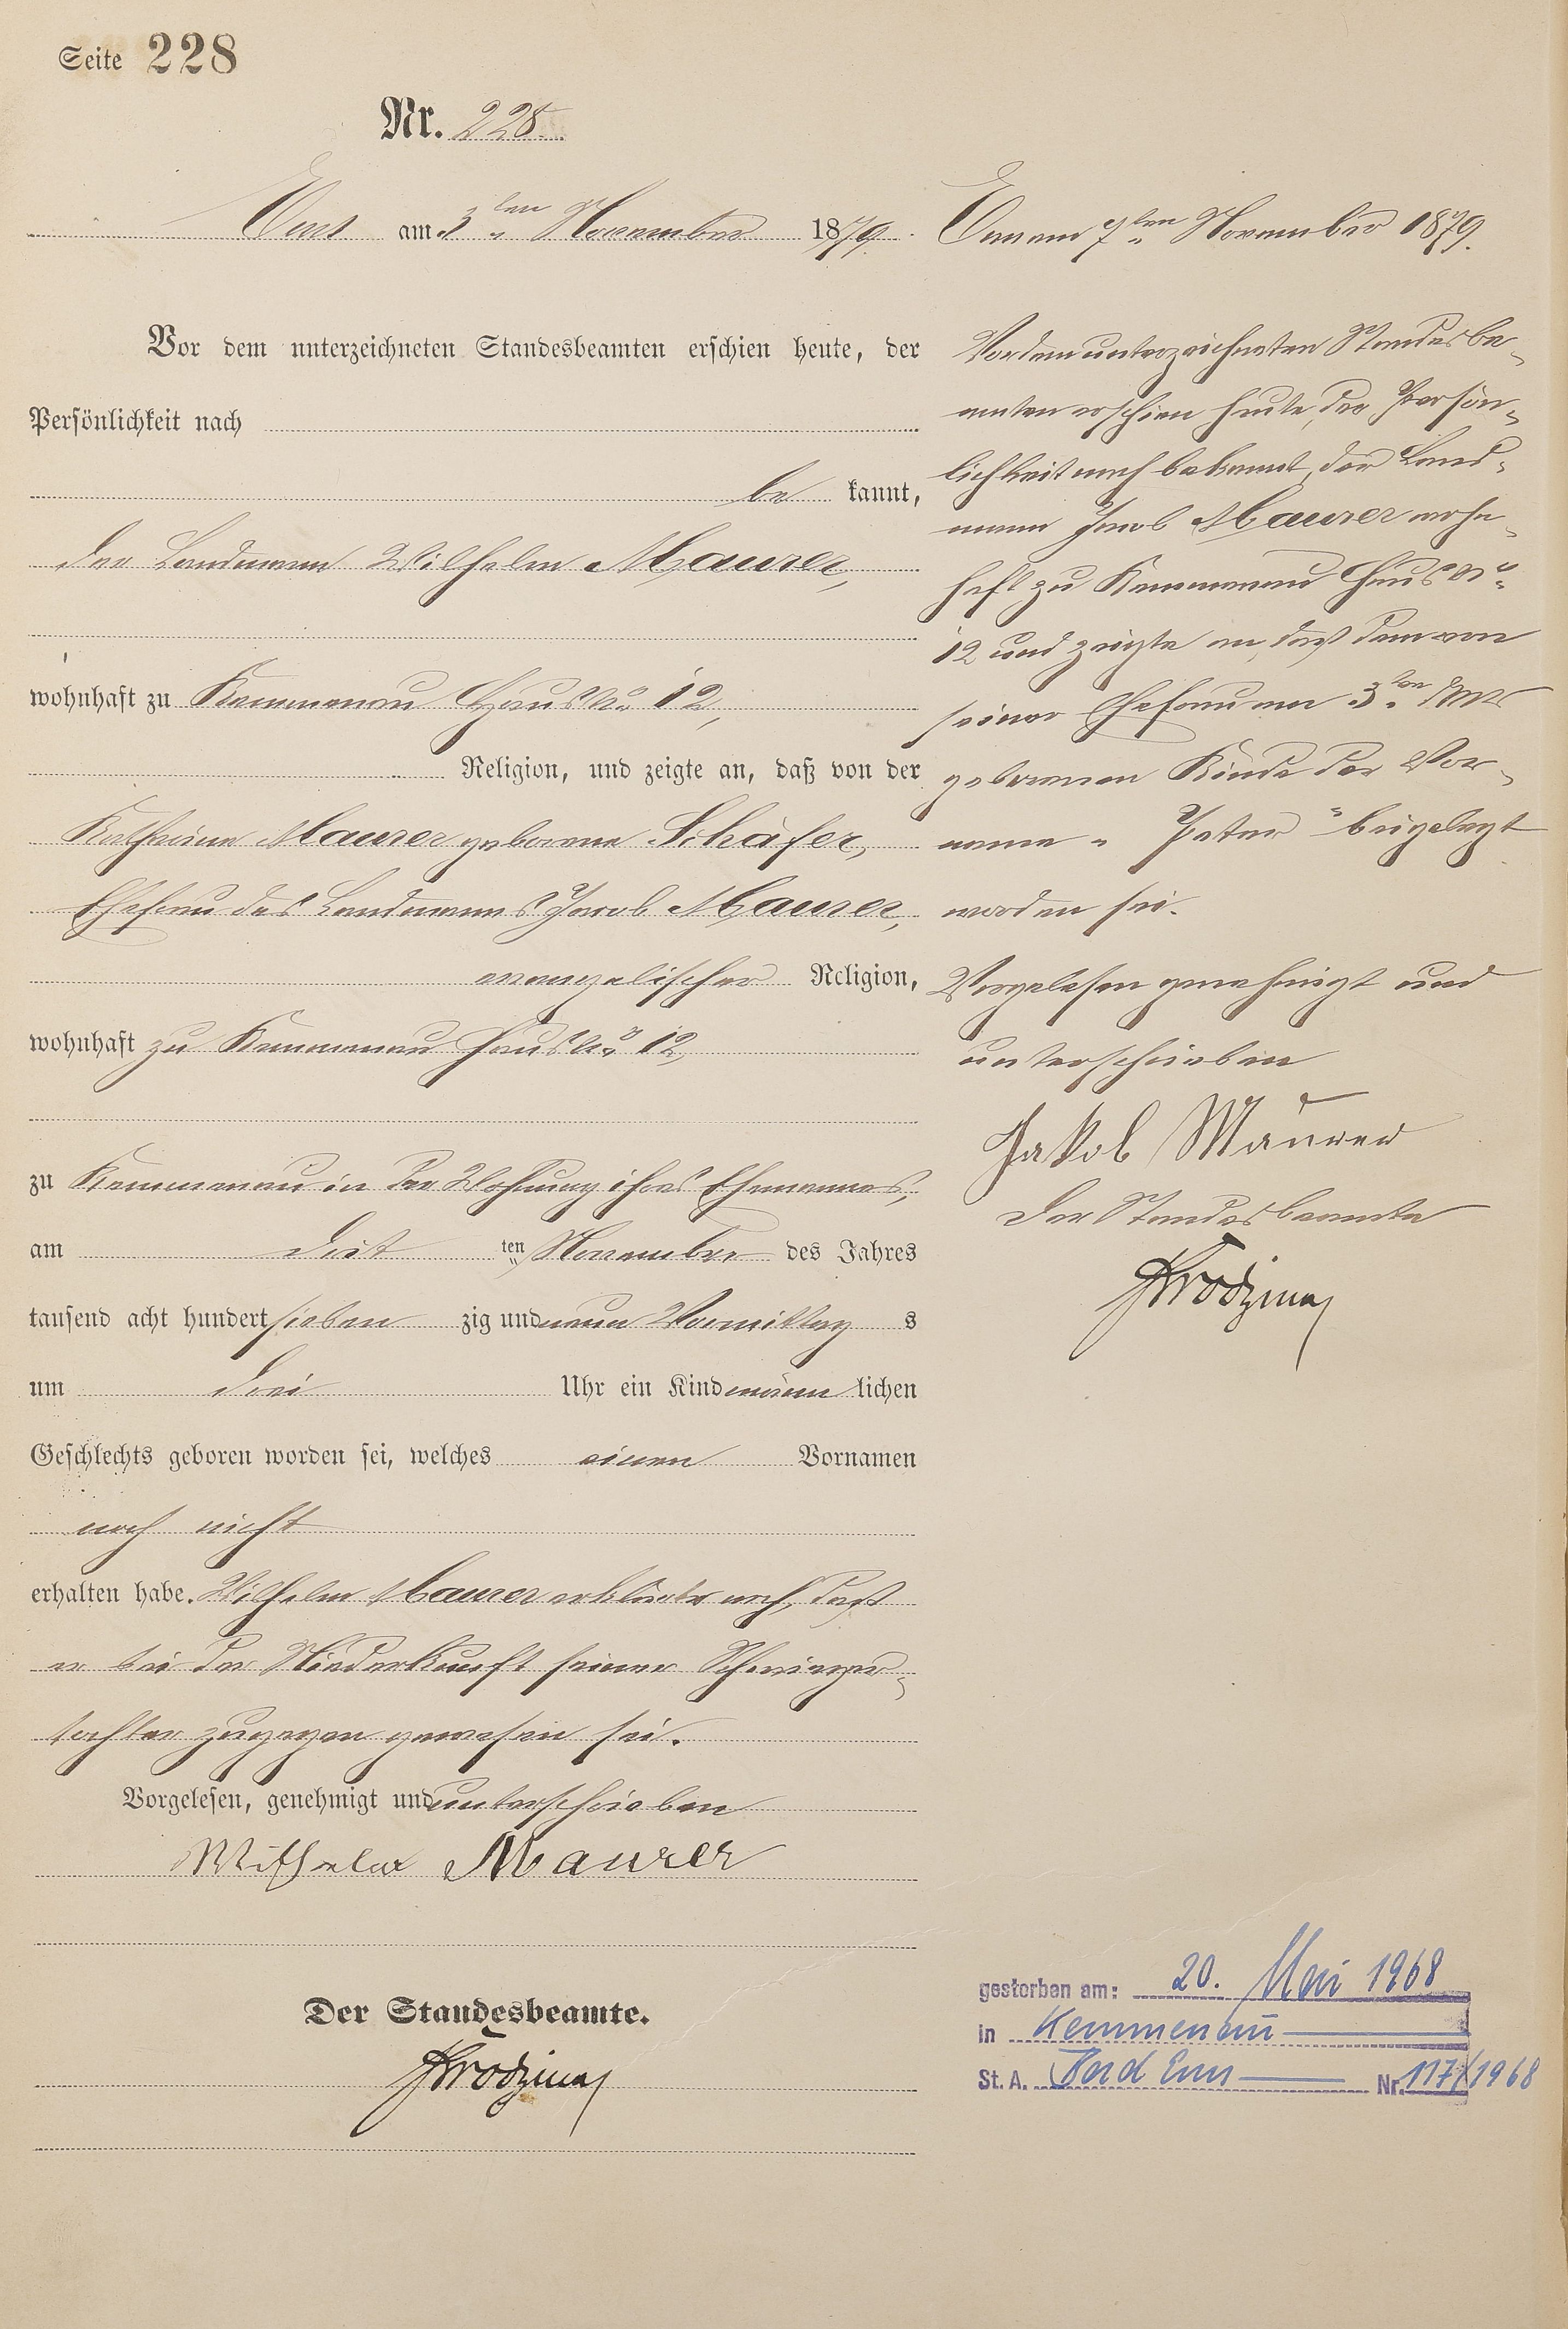 Seite 228
Nr. 228.
Ems am 3ten November 1879.
Vor dem unterzeichneten Standesbeamten erschien heute, der
Persönlichkeit nach
be kannt,
der Landmann Wilhelm Maurer,
wohnhaft zu Kemmenau Haus No 12,
Religion, und zeigte an, daß von der
Katharina Maurer geborene Schäfer,
Ehefrau des Landmanns Jacob Maurer,
evangelischer Religion,
wohnhaft zu Kemmenau Haus No 12,
zu Kemmenau in der Wohnung ihres Ehemannes,
am drit ten November des Jahres
tausend acht hundert sieben zig und neun Vormittag s
um drei Uhr ein Kind männ lichen
Geschlechts geboren worden sei, welches einen Vornamen
noch nicht
erhalten habe. Wilhelm Maurer erklärte noch, daß
er bei der Niederkunft seiner Schwieger-
tochter zugegen gewesen sei.
Vorgelesen, genehmigt und unterschrieben
Wilhelm Maurer
Der Standesbeamte.
Ems am 7ten November 1879.
Vor dem unterzeichneten Standesbe-
amten erschien heute, der Persön-
lichkeit nach bekannt, der Land-
mann Jacob Maurer wohn-
haft zu Kemmenau Haus No
12 und zeigte an, daß dem von
seiner Ehefrau am 3ten d Mts
geborenen Kinde der Vor-
name „Peter" beigelegt
worden sei.
Vorgelesen genehmigt und
unterschrieben
Jakob Maurer
Der Standesbeamte
gestorben am: 20. Mai 1968
in Kemmenau
St. A. Bad Ems Nr. 117/1968